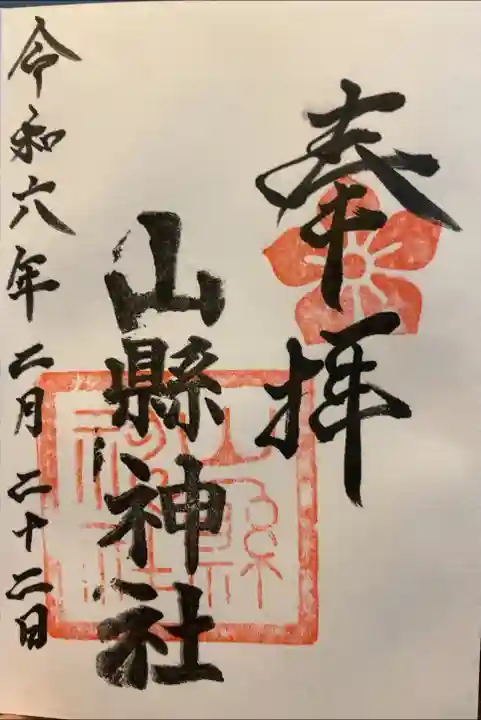 奉拝
山縣神社
山縣神社
令和六年二月二十二日